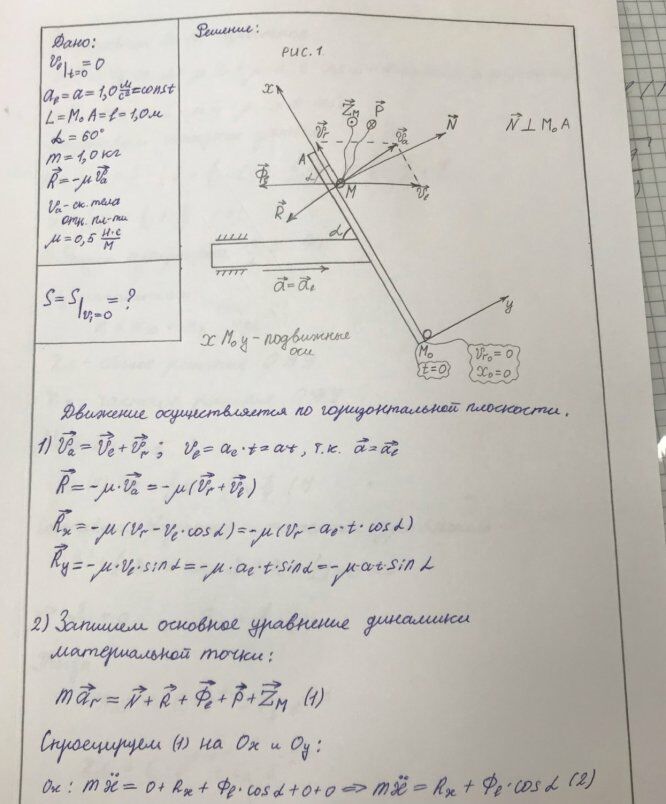 Дано:
Решение:
v_e|_{t=0} = 0
a_e = a = 1,0 м/с² = const
L = M₀A = ℓ = 1,0 м
α = 60°
m = 1,0 кг
R⃗ = -μ v⃗_a
v_a - ск. тела
отн. пл-ти
μ = 0,5 Н·с/м
S = S|_{v_i=0} = ?
РИС. 1
x
Z⃗_M
P⃗
v⃗_r
v⃗_a
N⃗
N⃗ ⊥ M₀A
A
α
Φ⃗_e
M
v⃗_e
R⃗
α
a⃗ = a⃗_e
y
O
M₀
t=0
v_{r0} = 0
x₀ = 0
x M₀ y - подвижные
оси
Движение осуществляется по горизонтальной плоскости.
1) v⃗_a = v⃗_e + v⃗_r ; v_e = a_e · t = at, т.к. a⃗ = a⃗_e
R⃗ = -μ · v⃗_a = -μ (v⃗_r + v⃗_e)
R⃗_x = -μ (v_r - v_e · cos α) = -μ (v_r - a_e · t · cos α)
R⃗_y = -μ · v_e · sin α = -μ · a_e · t · sin α = -μ · at · sin α
2) Запишем основное уравнение динамики
материальной точки:
m a⃗_r = N⃗ + R⃗ + Φ⃗_e + P⃗ + Z⃗_M (1)
Спроецируем (1) на Ox и Oy:
Ox: mẍ = 0 + R_x + Φ_e · cos α + 0 + 0 ⇒ mẍ = R_x + Φ_e · cos α (2)